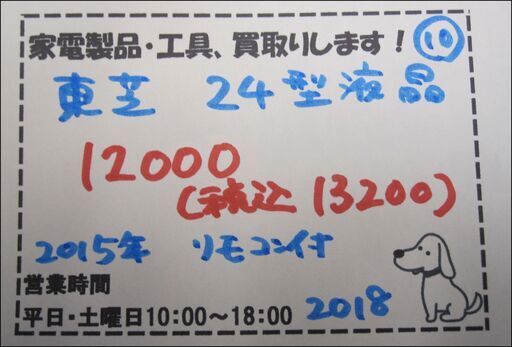 家電製品・工具、買取りします！ ⑩
東芝 24型液晶
12000
(税込 13200)
2015年 リモコン付
営業時間
平日・土曜日10:00～18:00 2018